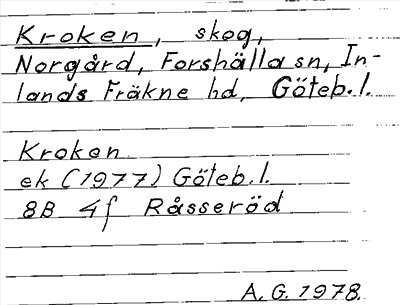 Kroken, skog,
Norgård, Forshälla sn, In-
lands Fräkne hd, Göteb. l.
Kroken
ek (1977) Göteb. l.
8B 4f Råsseröd
A. G. 1978.